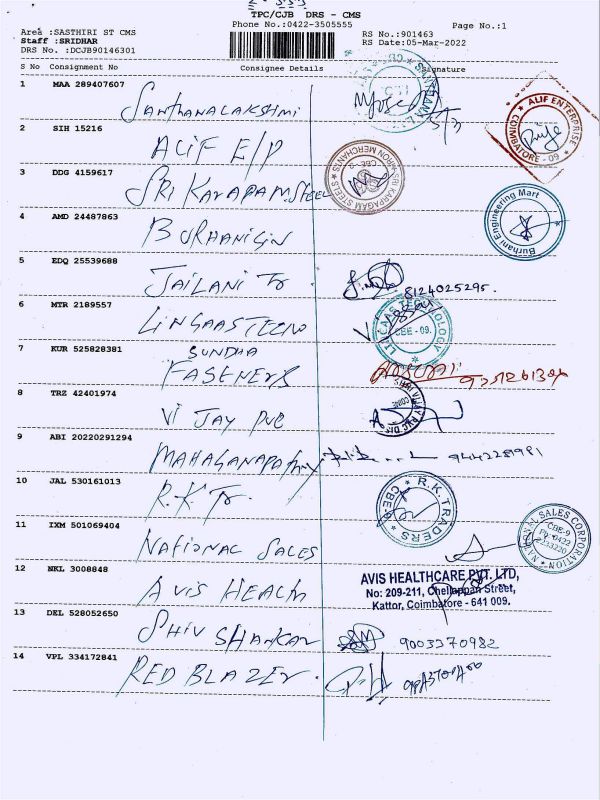 TPC/CJB DRS - CMS
Phone No.:0422-3505555
Page No.:1
Area :SASTHIRI ST CMS
Staff :SRIDHAR
DRS No. :DCJB90146301
RS No.:901463
RS Date:05-Mar-2022
S No Consignment No Consignee Details Signature
1 MAA 289407607
Santhanalakshmi
ALIF ENTERPRISE
COIMBATORE - 09
2 SIH 15216
ALIF E/P
3 DDG 4159617
SRI KARAPAM.STEEL
SRI KARPAGAM STEELS
IRON MERCHANTS
4 AMD 24487863
BURHANIGIN
Burhani Engineering Mart
5 EDQ 25539688
JAILANI Tr
8124025295.
6 MTR 2189557
LINGAASTECNO
CBE - 09.
7 KUR 525828381
SUNDHA
FASENERS
8 TRZ 42401974
VIJAY PVC
9 ABI 20220291294
MAHAGANAPATHY
9442281981
10 JAL 530161013
R.K Tr
R.K.TRADERS
CBE-9
11 IXM 501069404
NATIONAL SALES
NATIONAL SALES CORPORATION
CBE-9
12 NKL 3008848
AVIS HEALTH
AVIS HEALTHCARE PVT. LTD,
No: 209-211, Chellappan Street,
Kattor, Coimbatore - 641 009.
13 DEL 528052650
SHIV SHANKAR
9003370982
14 VPL 334172841
RED BLAZER